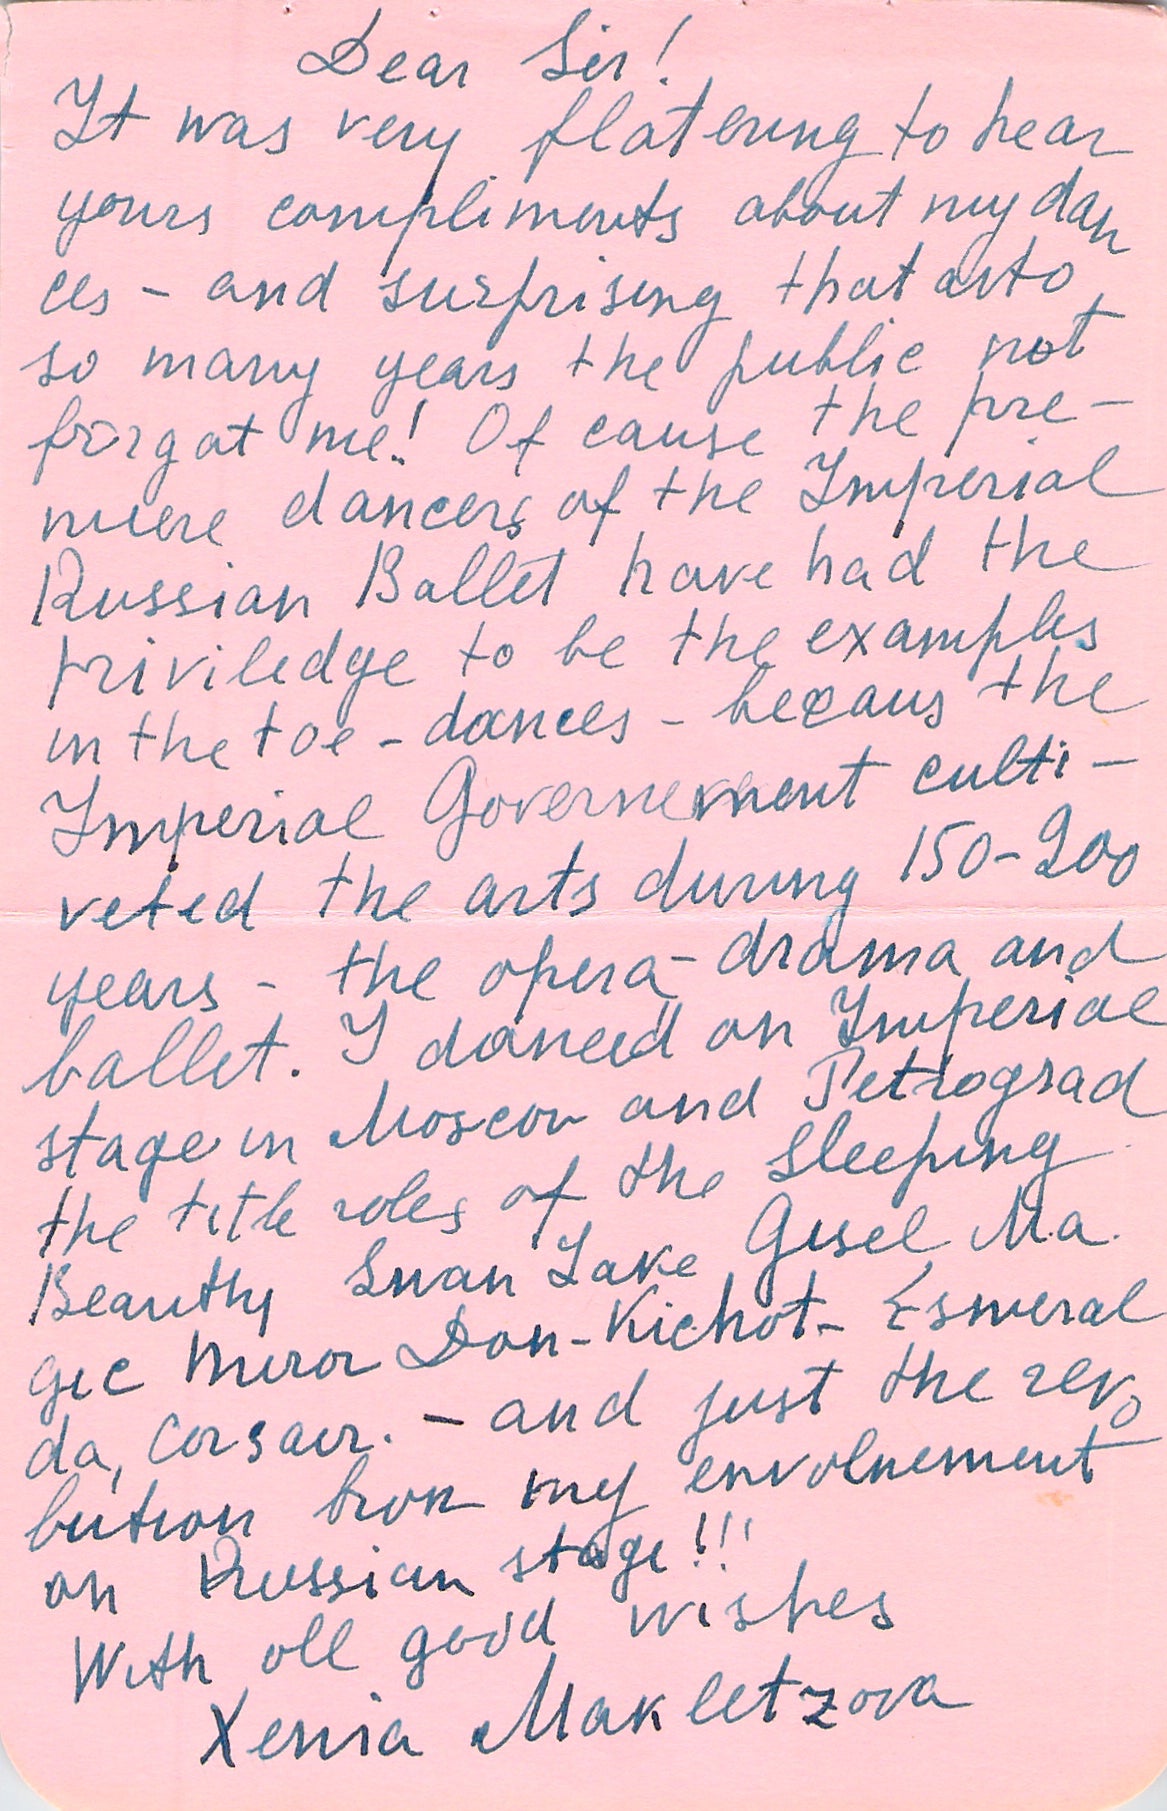 Dear Sir!
It was very flatering to hear
yours compliments about my dan
ces – and surprising that
so many years the public not
forgat me! Of cause the pre–
miere dancers of the Imperial
Russian Ballet have had the
priviledge to be the examples
in the toe – dances – becaus the
Imperial Governement culti–
veted the arts during 150–200
years – the opera – drama and
ballet. I danced on Imperial
stage in Moscow and Petrograd
the title roles of the Sleeping
Beauthy Swan Lake Gisel, Ma
gic Miror Don–Kichot– Esmeral
da, Corsair. – and just the revo
lution brok my
on Russian stage!!!
With all good wishes
Xenia Makletzova